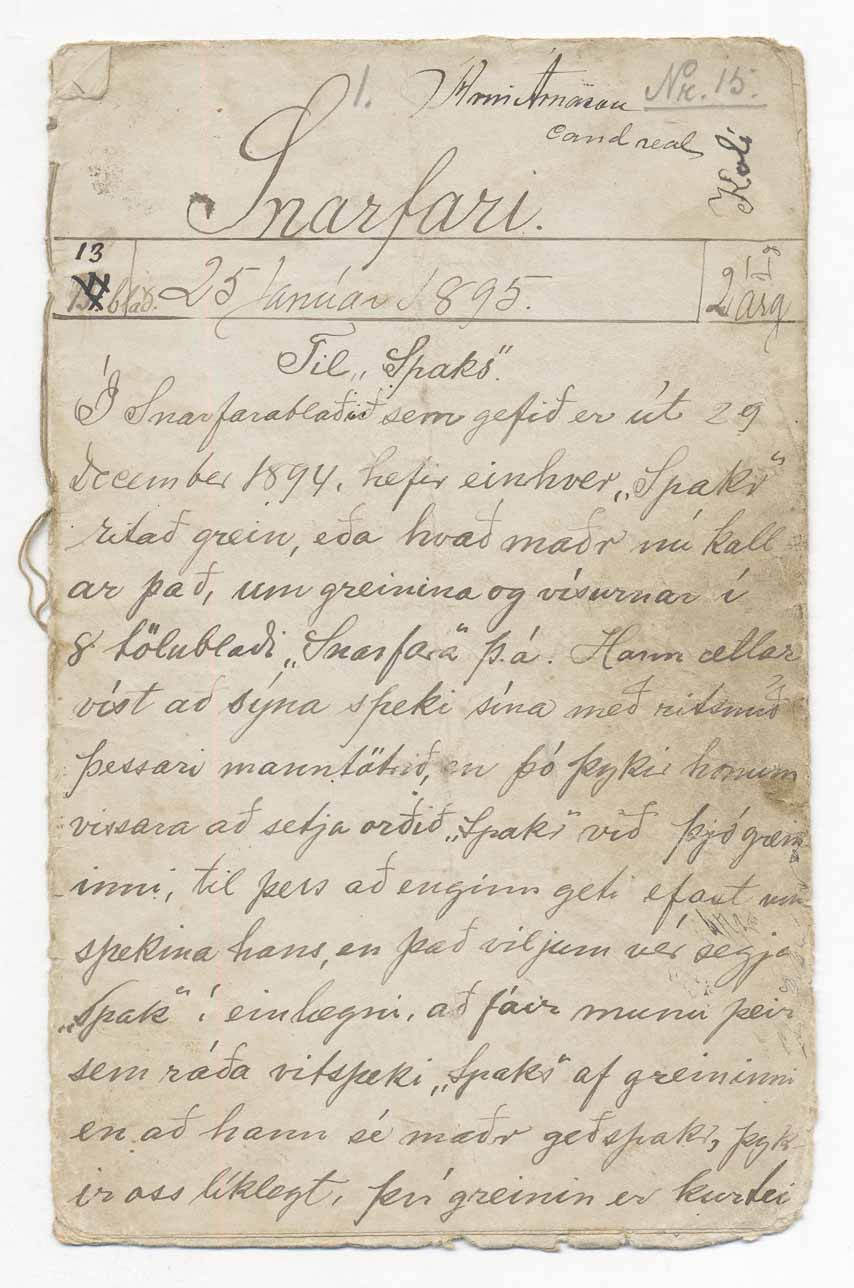 1. Árni Árnason Nr. 15.
cand real
Koli
Snarfari.
13
blað. 25 Janúar 1895. 2 árg
Til „Spaks“.
Í Snarfarablaðið sem gefið er út 29
December 1894, hefir einhver „Spakr“
ritað grein, eða hvað maðr nú kall
ar það, um greinina og vísurnar í
8 tölublaði „Snarfara“ þ.á. Hann ætlar
víst að sýna speki sína með ritsmíð
þessari manntötrið, en þó þykir honum
vissara að setja orðið „Spakr“ við þjó grein
inni, til þess að enginn geti efast um
spekina hans, en það viljum vér segja
„Spak“ í einlægni, að fáir munu þeir
sem ráða vitspeki „Spaks“ af greininni
en að hann sé maðr geðspakr, þyk
ir oss líklegt, því greinin er kurtei